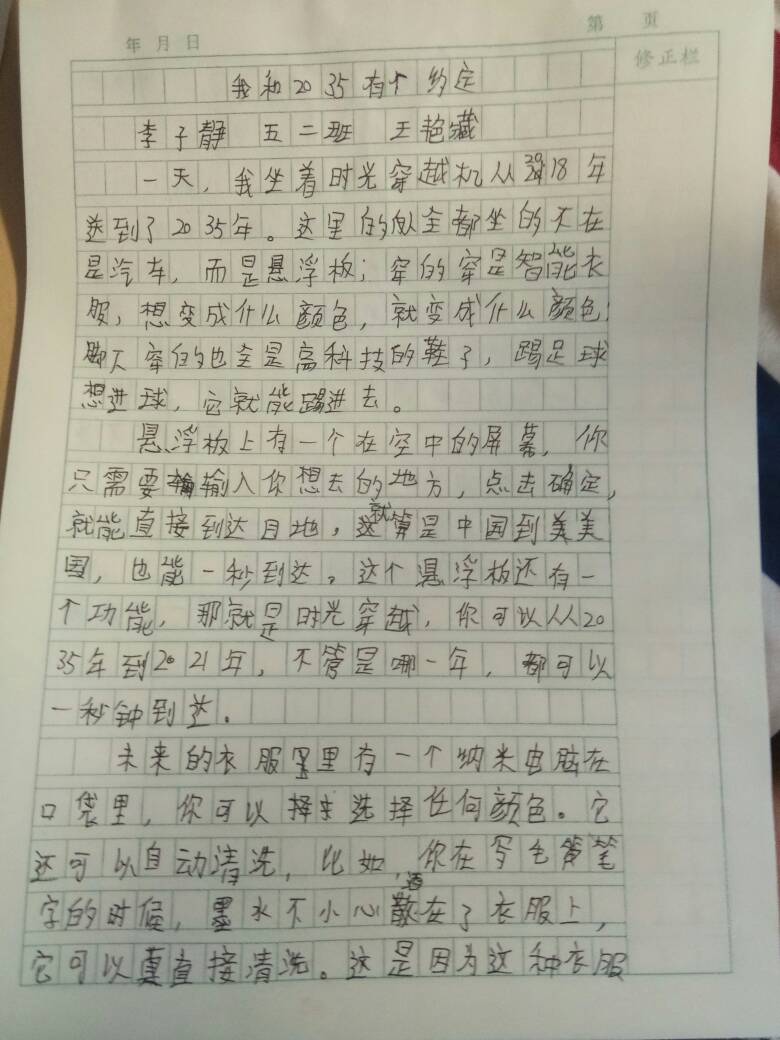 第 页
年 月 日
修正栏
我和2035有个约定
李子静 五二班 王艳藏
一天，我坐着时光穿越机从2018年
达到了2035年。这里的人全都坐的不在
是汽车，而是悬浮板；穿的穿是智能衣
服，想变成什么颜色，就变成什么颜色；
脚下穿的也全是高科技的鞋子，踢足球
想进球，它就能踢进去。
悬浮板上有一个在空中的屏幕，你
只需要输入你想去的地方，点击确定，
就能直接到达目地，就算是中国到美美
国，也能一秒到达。这个悬浮板还有一
个功能，那就是时光穿越，你可以从20
35年到2021年，不管是哪一年，都可以
一秒钟到达。
未来的衣服里有一个纳米电脑在
口袋里，你可以选择任何颜色。它
还可以自动清洗，比如，你在写毛笔
字的时候，墨水不小心洒在了衣服上，
它可以直接清洗。这是因为这种衣服